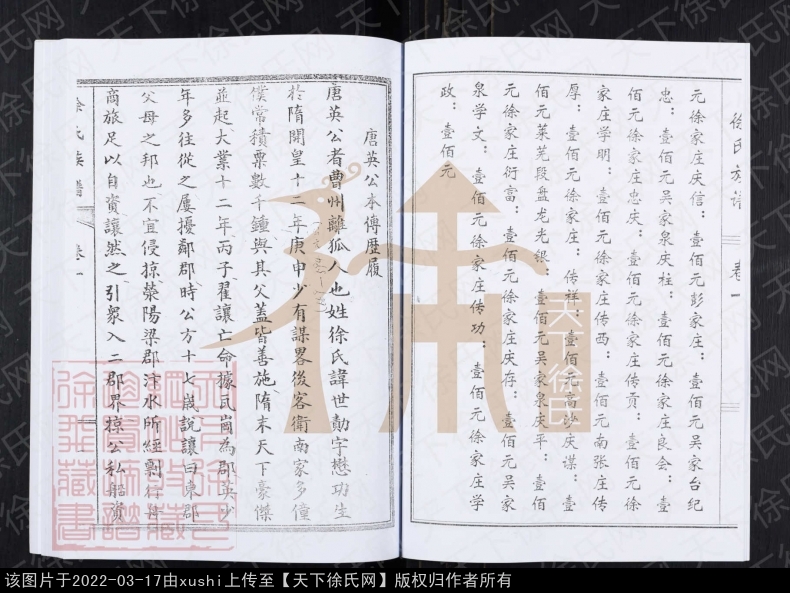 徐氏族谱
卷一
元徐家庄庆信：壹佰元彭家庄：壹佰元吴家台纪
忠：壹佰元吴家泉庆柱：壹佰元徐家庄良会：壹
佰元徐家庄忠庆：壹佰元徐家庄传贡：壹佰元徐
家庄学明：壹佰元徐家庄传西：壹佰元南张庄传
厚：壹佰元徐家庄：传祥：壹佰元高沙庆谋：壹
佰元莱芜段盘龙光银：壹佰元吴家泉庆平：壹佰
元徐家庄衍富：壹佰元徐家庄庆存：壹佰元吴家
泉学文：壹佰元徐家庄传功：壹佰元徐家庄学
政：壹佰元
唐英公本傳歷履
唐英公者曹州離狐人也姓徐氏諱世勣字懋功生
於隋開皇十二年庚申少有謀畧後客衛南家多僮
僕常積粟數千鍾與其父蓋皆善施隋末天下豪傑
並起大業十二年丙子翟讓亡命據瓦崗為郡英少
年多往從之屢擾鄰郡時公方十七歲說讓曰東郡
父母之邦也不宜侵掠滎陽梁郡汴水所經剽行舟
商旅足以自資讓然之引衆入二郡界掠公私船資
徐氏族譜
卷一
天下徐氏
该图片于2022-03-17由xushi上传至【天下徐氏网】版权归作者所有